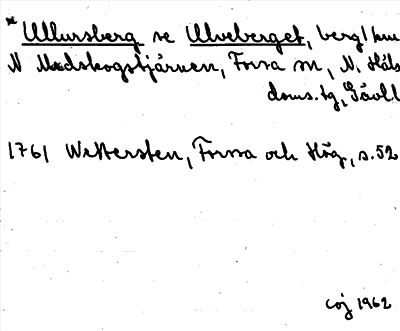 *Ullursberg se Ulveberget, berg 1 km
N Medskogstjärnen, Forsa sn, N. Häls
doms.tg, Gävl.l
1761 Wettersten, Forssa och Hög, s. 52
COJ 1962